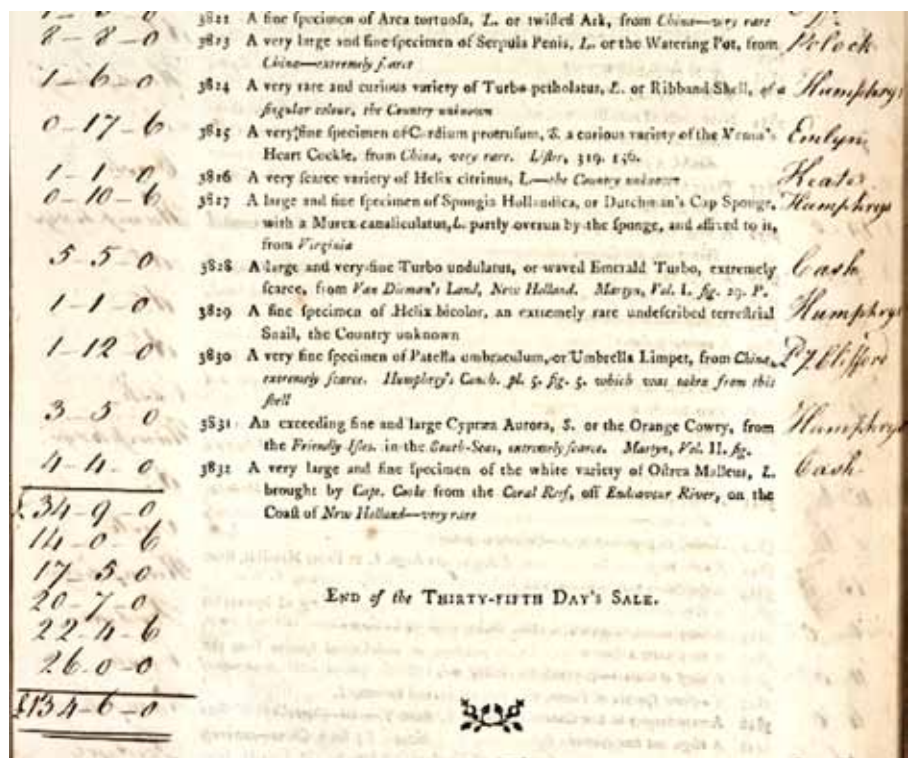 3822 A fine specimen of Arca tortuosa, L. or twisted Ark, from China—very rare
8-8-0 3823 A very large and fine specimen of Serpula Penis, L. or the Watering Pot, from
China—extremely scarce
1-6-0 3824 A very rare and curious variety of Turbo petholatus, L. or Ribband Shell, of a Humphrys
singular colour, the Country unknown
0-17-6 3825 A very fine specimen of Cardium protrusum, S. a curious variety of the Venus's Emlyn
Heart Cockle, from China, very rare. Lister, 319. 156.
1-1-0 3826 A very scarce variety of Helix citrinus, L—the Country unknown Keate
0-10-6 3827 A large and fine specimen of Spongia Hollandica, or Dutchman's Cap Sponge, Humphrys
with a Murex canaliculatus, L. partly overun by the sponge, and affixed to it,
from Virginia
5-5-0 3828 A large and very fine Turbo undulatus, or waved Emerald Turbo, extremely Cash
scarce, from Van Dieman's Land, New Holland. Martyn, Vol. I. fig. 29. P.
1-1-0 3829 A fine specimen of Helix bicolor, an extremely rare undescribed terrestrial Humphrys
Snail, the Country unknown
1-12-0 3830 A very fine specimen of Patella umbraculum, or Umbrella Limpet, from China,
extremely scarce. Humphrey's Conch. pl. 5. fig. 5. which was taken from this
shell
3-5-0 3831 An exceeding fine and large Cypræa Aurora, S. or the Orange Cowry, from Humphrys
the Friendly Isles. in the South-Seas, extremely scarce. Martyn, Vol. II. fig.
4-4-0 3832 A very large and fine specimen of the white variety of Ostrea Malleus, L. Cash
brought by Capt. Cooke from the Coral Reef, off Endeavour River, on the
£34-9-0 Coast of New Holland—very rare
14-0-6
17-5-0
20-7-0 END of the THIRTY-FIFTH DAY'S SALE.
22-4-6
26-0-0
£134-6-0